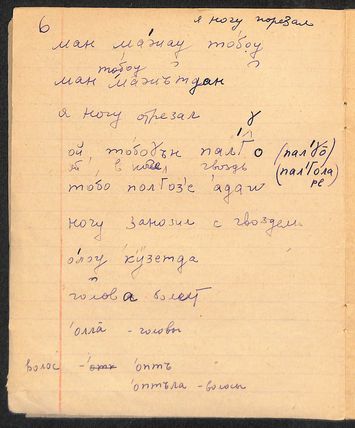 6
я ногу порезал
ман ма́җау то́боу
то́боу
ман ма́җитъдан
я ногу отрезал
ой то́бођън пал'Го (пал'ғо)
в ноге гвоздь (пал'Гола
тобо полгоз'е а́даџ ре)
ногу занозил с гвоздем
о́лоу кӱзетда
голова болет
о́лла̄ - головы
волос - о́птъ
о́птъла - волосы